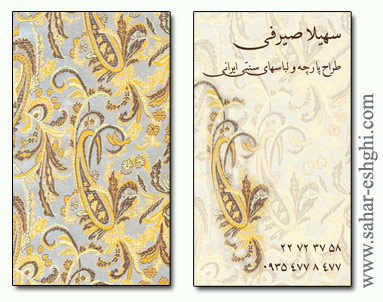 سهیلا صیرفی
طراح پارچه و لباسهای سنتی ایرانی
۲۲ ۷۲ ۳۷ ۵۸
۰۹۳۵ ۴۷۷ ۸ ۴۷۷
www.sahar-eshghi.com